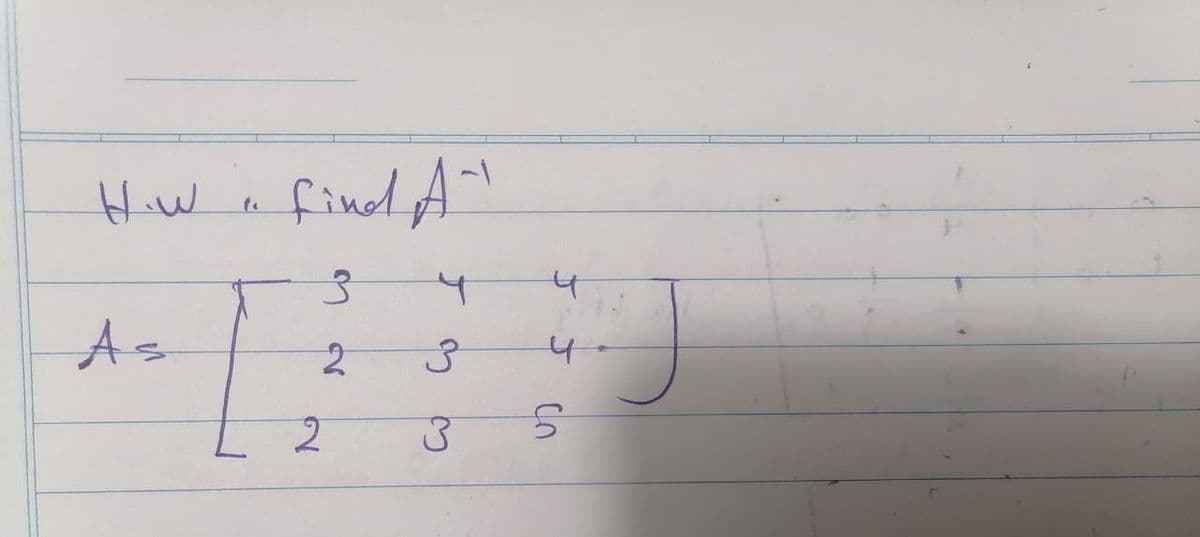 H.W " find A⁻¹
3 4 4
A = [ 2 3 4 ]
2 3 5